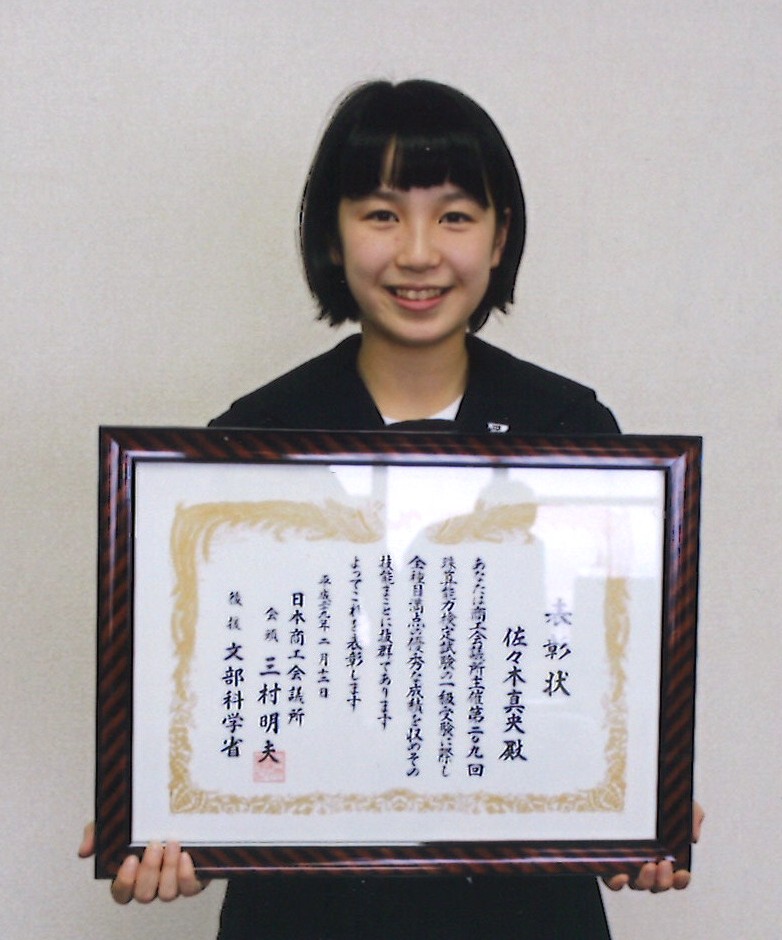 表彰状
佐々木真央殿
あなたは商工会議所主催第二〇九回
珠算能力検定試験の一級受験に際し
全種目満点の優秀な成績を収めその
技能まことに抜群であります
よってこれを表彰します
平成二十九年二月十二日
日本商工会議所
会頭 三村明夫
後援 文部科学省